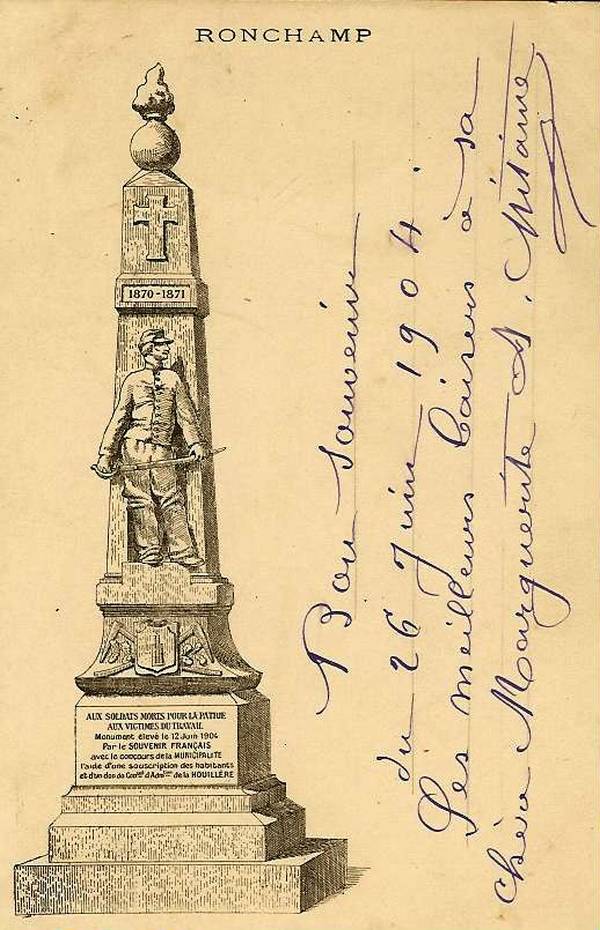 RONCHAMP
1870-1871
AUX SOLDATS MORTS POUR LA PATRIE
AUX VICTIMES DU TRAVAIL
Monument élevé le 12 Juin 1904
Par le SOUVENIR FRANÇAIS
avec le concours de la MUNICIPALITE
l'aide d'une souscription des habitants
et d'un don du Conseil d'Admon de la HOUILLÈRE
Bon souvenir
du 26 Juin 1904.
Les meilleurs baisers à sa
chère Marguerite A.